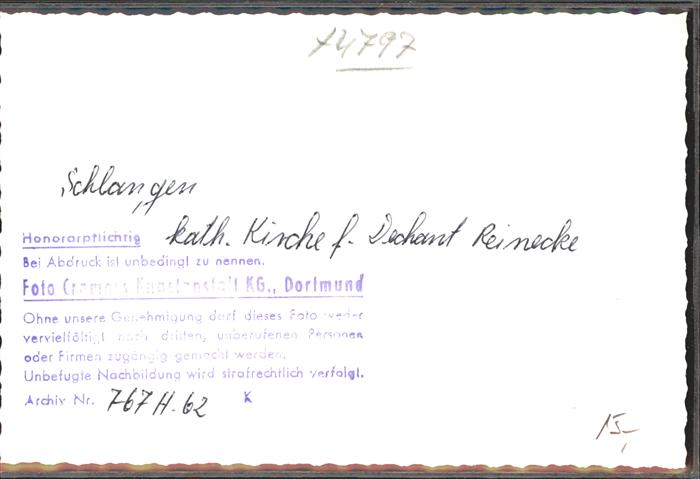 14797
Schlangen
kath. Kirche f. Dechant Reinecke
Honorarpflichtig
Bei Abdruck ist unbedingt zu nennen.
Foto Cramers Kunstanstalt KG., Dortmund
Ohne unsere Genehmigung darf dieses Foto weder
vervielfältigt noch dritten, unberufenen Personen
oder Firmen zugängig gemacht werden.
Unbefugte Nachbildung wird strafrechtlich verfolgt.
Archiv Nr. 767 H. 62 K
15,-